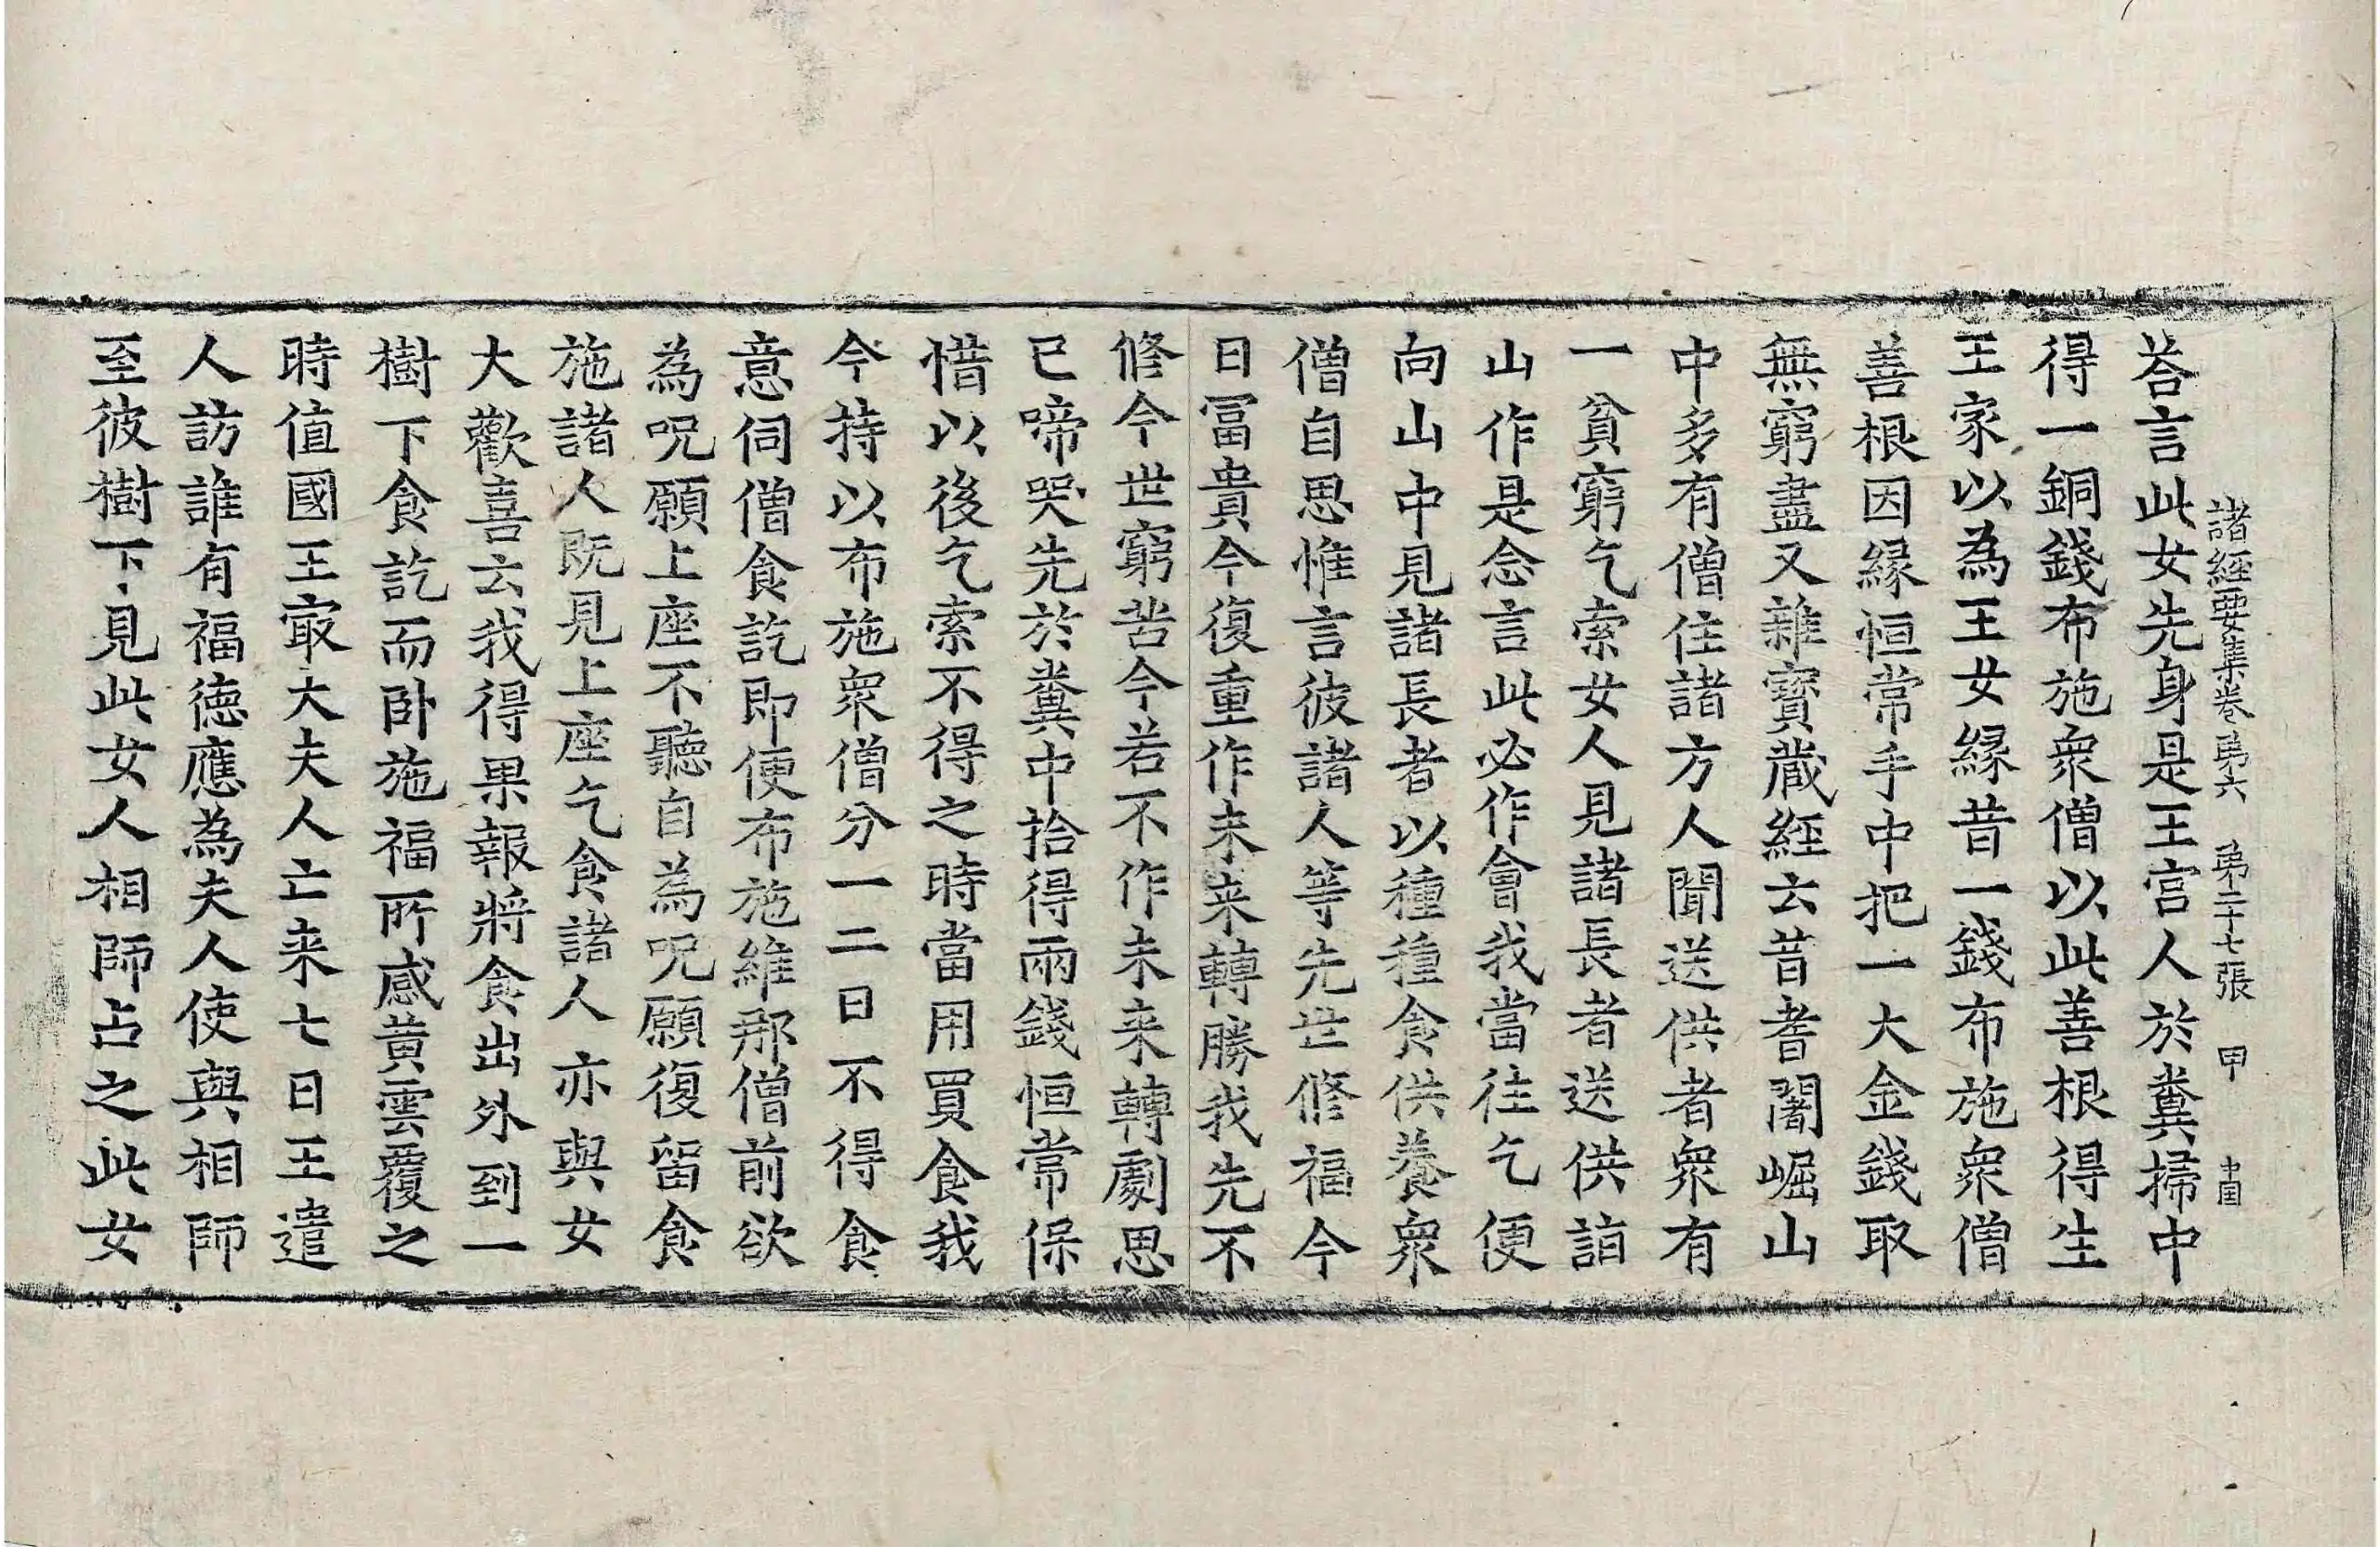 諸經要集卷第六 第二十七張 甲
荅言此女先身是王宮人於糞掃中
得一銅錢布施衆僧以此善根得生
王家以為王女緣昔一錢布施衆僧
善根因緣恒常手中把一大金錢取
無窮盡又雜寶蔵經云昔耆闍崛山
中多有僧住諸方人聞送供者衆有
一貧窮乞索女人見諸長者送供詣
山作是念言此必作會我當往乞便
向山中見諸長者以種種食供養衆
僧自思惟言彼諸人等先世修福今
日冨貴今復重作未来轉勝我先不
修今世窮苦今若不作未来轉劇思
已啼哭先於糞中拾得兩錢恒常保
惜以後乞索不得之時當用買食我
今持以布施衆僧分一二日不得食
意伺僧食訖即便布施維那僧前欲
為呪願上座不聽自為呪願復留食
施諸人既見上座乞食諸人亦與女
大歡喜云我得果報將食出外到一
樹下食訖而卧施福所感黄雲覆之
時值國王㝡大夫人亡来七日王遣
人訪誰有福德應為夫人使與相師
至彼樹下見此女人相師占之此女